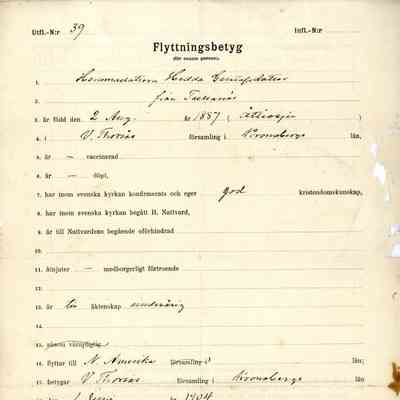 Utfl.-N:r 39 Infl.-N:r
Flyttningsbetyg
(för ensam person).
1. Hemmadottern Hedda
2. från
3. är född den 2 Aug. år 1887 (
4. i V. Thorsås församling i Kronobergs län,
5. är — vaccinerad
6. är — döpt,
7. har inom svenska kyrkan konfirmerats och eger god kristendomskunskap,
8. har inom svenska kyrkan begått H. Nattvard,
9. är till Nattvardens begående oförhindrad
10.
11. åtnjuter — medborgerligt förtroende
12.
13. är till äktenskap
14.
15.
16. flyttar till N. Amerika församling i län;
17. betygar V. Thorsås församling i Kronobergs län
den 1 1904